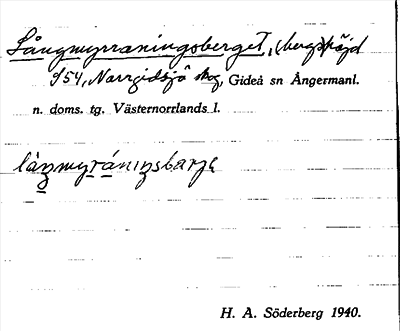 Långmyrraningsberget, (berg)höjd
954, Norrgidsjö skog, Gideå sn Ångermanl.
n. doms. tg. Västernorrlands l.
låŋmyrániŋsbarje
H. A. Söderberg 1940.